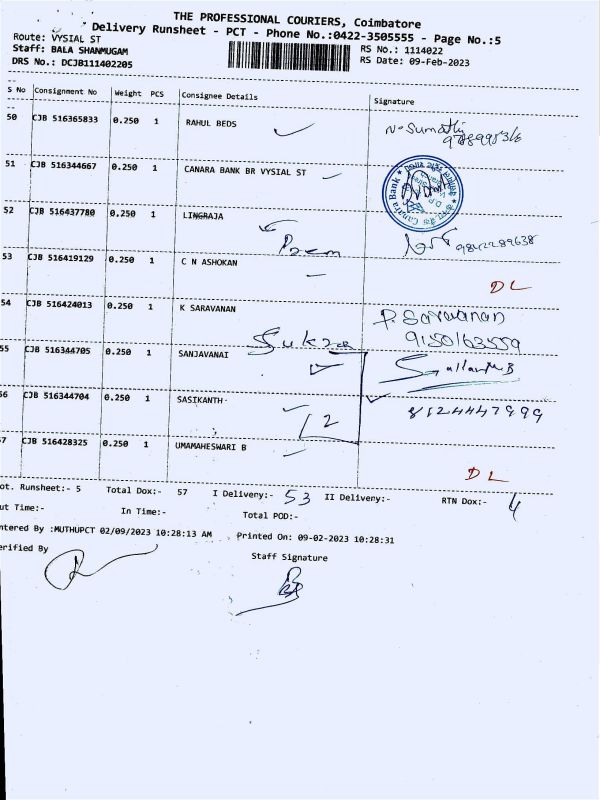 THE PROFESSIONAL COURIERS, Coimbatore
Delivery Runsheet - PCT - Phone No.:0422-3505555 - Page No.:5
Route: VYSIAL ST
RS No.: 1114022
Staff: BALA SHANMUGAM
RS Date: 09-Feb-2023
DRS No.: DCJB111402205
S No Consignment No Weight PCS Consignee Details Signature
50 CJB 516365833 0.250 1 RAHUL BEDS
51 CJB 516344667 0.250 1 CANARA BANK BR VYSIAL ST
Canara Bank
52 CJB 516437780 0.250 1 LINGRAJA
9842289638
53 CJB 516419129 0.250 1 C N ASHOKAN
DL
54 CJB 516424013 0.250 1 K SARAVANAN P. Saravanan
9150163559
55 CJB 516344705 0.250 1 SANJAVANAI
56 CJB 516344704 0.250 1 SASIKANTH-
2
8124447999
57 CJB 516428325 0.250 1 UMAMAHESWARI B
DL
ot. Runsheet:- 5 Total Dox:- 57 I Delivery:- 53 II Delivery:- RTN Dox:- 4
ut Time:- In Time:- Total POD:-
ntered By :MUTHUPCT 02/09/2023 10:28:13 AM Printed On: 09-02-2023 10:28:31
erified By
Staff Signature